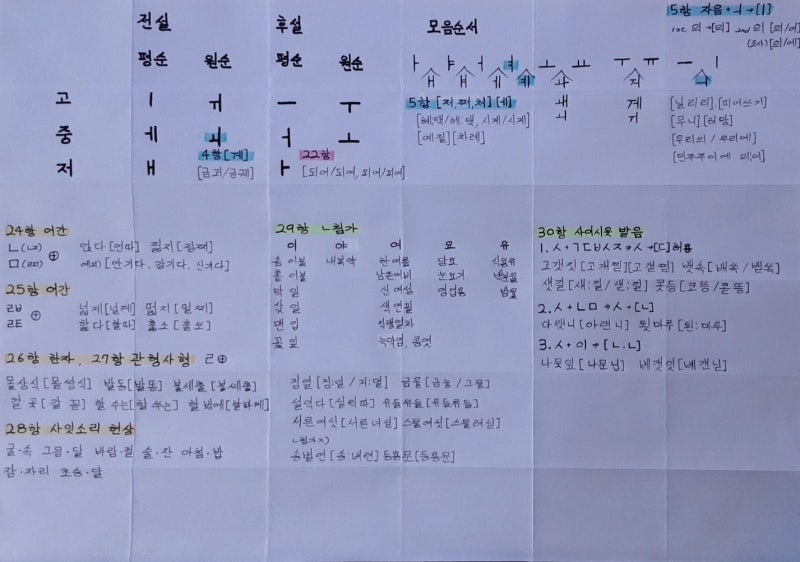 전설 후설 모음순서
평순 원순 평순 원순
고 ㅣ ㅟ ㅡ ㅜ
중 ㅔ ㅚ ㅓ ㅗ
저 ㅐ ㅏ
4항 [계]
[금괴/금궤]
22항
[되어/되여, 피어/피여]
ㅏ ㅑ ㅓ ㅕ ㅗ ㅛ ㅜ ㅠ ㅡ ㅣ
ㅐ ㅒ ㅔ ㅖ ㅘ ㅝ ㅢ
ㅙ ㅞ
ㅚ ㅟ
5항 [저,쩌,처] [네]
[혜택/헤:택, 시계/시게]
[예절] [차례]
5항 자음+ㅢ→[ㅣ]
1st 의→[의] 2nd 의 [의/이]
(조사)[의/에]
[닐리리], [띄어쓰기]
[무늬] [희망]
[우리의/우리에]
[민주주의에 의의]
24항 어간
ㄴ(ㄵ) ⊕ 앉다[안따] 젊지[점찌]
ㅁ(ㄻ) 예외) [안기다, 감기다, 신기다]
25항 어간
ㄼ ⊕ 넓게[널께] 떫지[떨찌]
ㄾ 핥다[할따] 훑소[훌쏘]
26항 한자, 27항 관형사형 ㄹ⊕
몰상식[몰쌍식] 발동[발똥] 불세출[불쎄출]
갈 곳[갈 꼳] 할 수는[할 쑤는] 할 밖에[할빠께]
28항 사잇소리 현상
굴·속 그믐·달 바람·결 술·잔 아침·밥
잠·자리 초승·달
29항 ㄴ첨가
이 야 여 요 유
솜 이불 내복약 한여름 담요 식용유
홑 이불 남존여비 눈요기 백분율
막 일 신 여성 영업용 밤윷
삯 일 색 연필
맨 입 직행열차
꽃 잎 늑막염, 콩엿
검열[검:녈/거:멸] 금융[금늉/그뮹]
설익다[설릭따] 유들유들[유들류들]
서른여섯[서른녀섣] 스물여섯[스물려섣]
ㄴ첨가X)
송별연[송:벼련] 등용문[등용문]
30항 사이시옷 발음
1. ㅅ+ㄱㄷㅂㅅㅈ→ㅅ→[ㄷ]허용
고갯짓[고개찓][고갣찓] 뱃속[배쏙/밷쏙]
샛길[새:낄/샏:낄] 콧등[코뜽/콛뜽]
2. ㅅ+ㄴㅁ→ㅅ→[ㄴ]
아랫니[아랜니] 툇마루[퇸:마루]
3. ㅅ+이→[ㄴ.ㄴ]
나뭇잎[나문닙] 베갯잇[베갠닏]